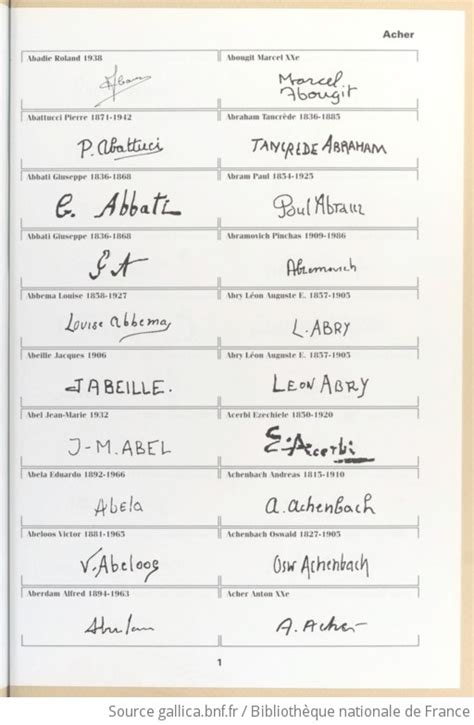 Acher
Abadie Roland 1938
Abougit Marcel XXe
Marcel
Abougit
Abattucci Pierre 1871-1942
Abraham Tancrède 1836-1885
P. Abattuci
TANCRÈDE ABRAHAM
Abbati Giuseppe 1836-1868
Abram Paul 1854-1925
G. Abbati
Paul Abram
Abbati Giuseppe 1836-1868
Abramovich Pinchas 1909-1986
G A
Abramovich
Abbema Louise 1858-1927
Abry Léon Auguste E. 1857-1905
Louise Abbema
L. ABRY
Abeille Jacques 1906
Abry Léon Auguste E. 1857-1905
J ABEILLE.
LEON ABRY
Abel Jean-Marie 1932
Acerbi Ezechiele 1850-1920
J-M. ABEL
E. Acerbi
Abela Eduardo 1892-1966
Achenbach Andreas 1815-1910
Abela
A. Achenbach
Abeloos Victor 1881-1965
Achenbach Oswald 1827-1905
V. Abeloos
Osw Achenbach
Aberdam Alfred 1894-1963
Acher Anton XXe
A. Acher
1
Source gallica.bnf.fr / Bibliothèque nationale de France